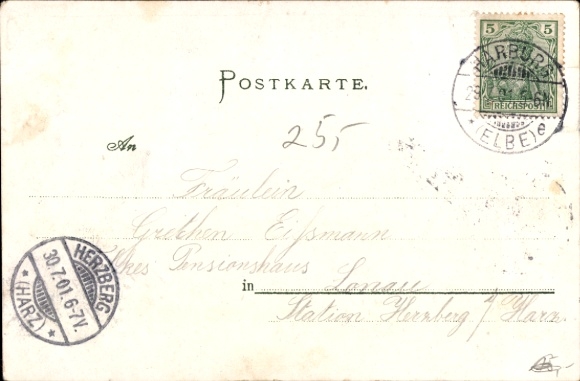 5 5
REICHSPOST
HARBURG
(ELBE) e
POSTKARTE.
255
An
Fräulein
Gretchen Eißmann
Pensionshaus
in Lonau
Station Herzberg a/Harz
HERZBERG
30.7.01.6-7V.
* (HARZ) *